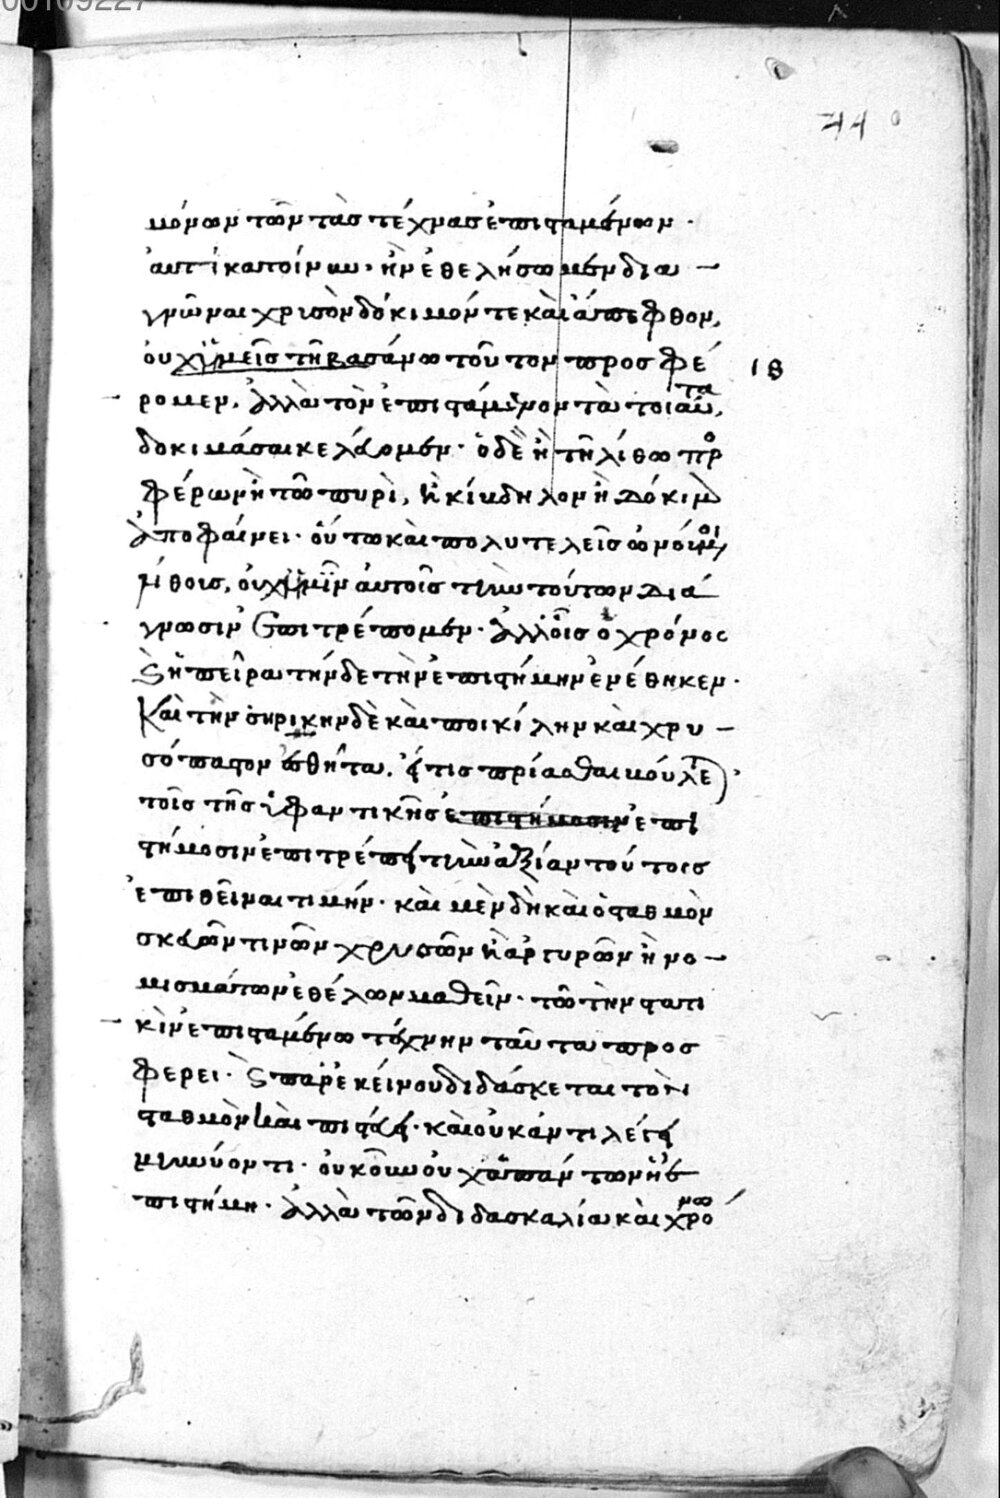 00109227
μόνων τῶν τὰς τέχνας ἐπισταμένων·
αὐτίκα τοίνυν, ἢν ἐθελήσωμεν δια
γνῶναι χρυσὸν δόκιμόν τε καὶ ἄπεφθον,
οὐχ ἡμεῖς τῇ βασάνῳ τοῦτον προσφέ
ρομεν, ἀλλὰ τὸν ἐπιστάμενον τὰ τοιαῦτα,
δοκιμάσαι κελεύομεν· ὁ δὲ ἢ τῇ λίθῳ προ
φέρων ἢ τῷ πυρὶ, ἢ κίβδηλον ἢ δόκιμον
ἀποφαίνει· οὕτω καὶ πολυτελείας ὠνούμενοι
λίθους, οὐχ ἡμῖν αὐτοῖς τὴν τούτων διά
γνωσιν ἐπιτρέπομεν· ἀλλ' οἷς ὁ χρόνος
καὶ ἡ πεῖρα τήνδε τὴν ἐπιστήμην ἐνέθηκεν·
Καὶ τὴν σηρικὴν δὲ καὶ ποικίλην καὶ χρυ
σόπαστον ἐσθῆτα, εἴ τις πρίασθαι βούλεται,
τοῖς τῆς ὑφαντικῆς ἐπιστήμοσιν ἐπι
στήμοσιν ἐπιτρέπει τὴν ἀξίαν τούτοις
ἐπιθεῖναι τιμήν· καὶ μὲν δὴ καὶ ὁ σταθμὸν
σκευῶν τινῶν χρυσῶν ἢ ἀργυρῶν ἢ νο
μισμάτων ἐθέλων μαθεῖν· τῷ τὴν στατι
κὴν ἐπισταμένῳ τέχνην ταῦτα προσ
φέρει· καὶ παρ' ἐκείνου διδάσκεται τὸν
σταθμὸν καὶ πιστεύει· καὶ οὐκ ἀντιλέγει
μηνύοντι· οὐκοῦν οὐχ ἁπάντων ἡ ἐ
πιστήμη· ἀλλὰ τῶν διδασκαλίᾳ καὶ χρόνῳ